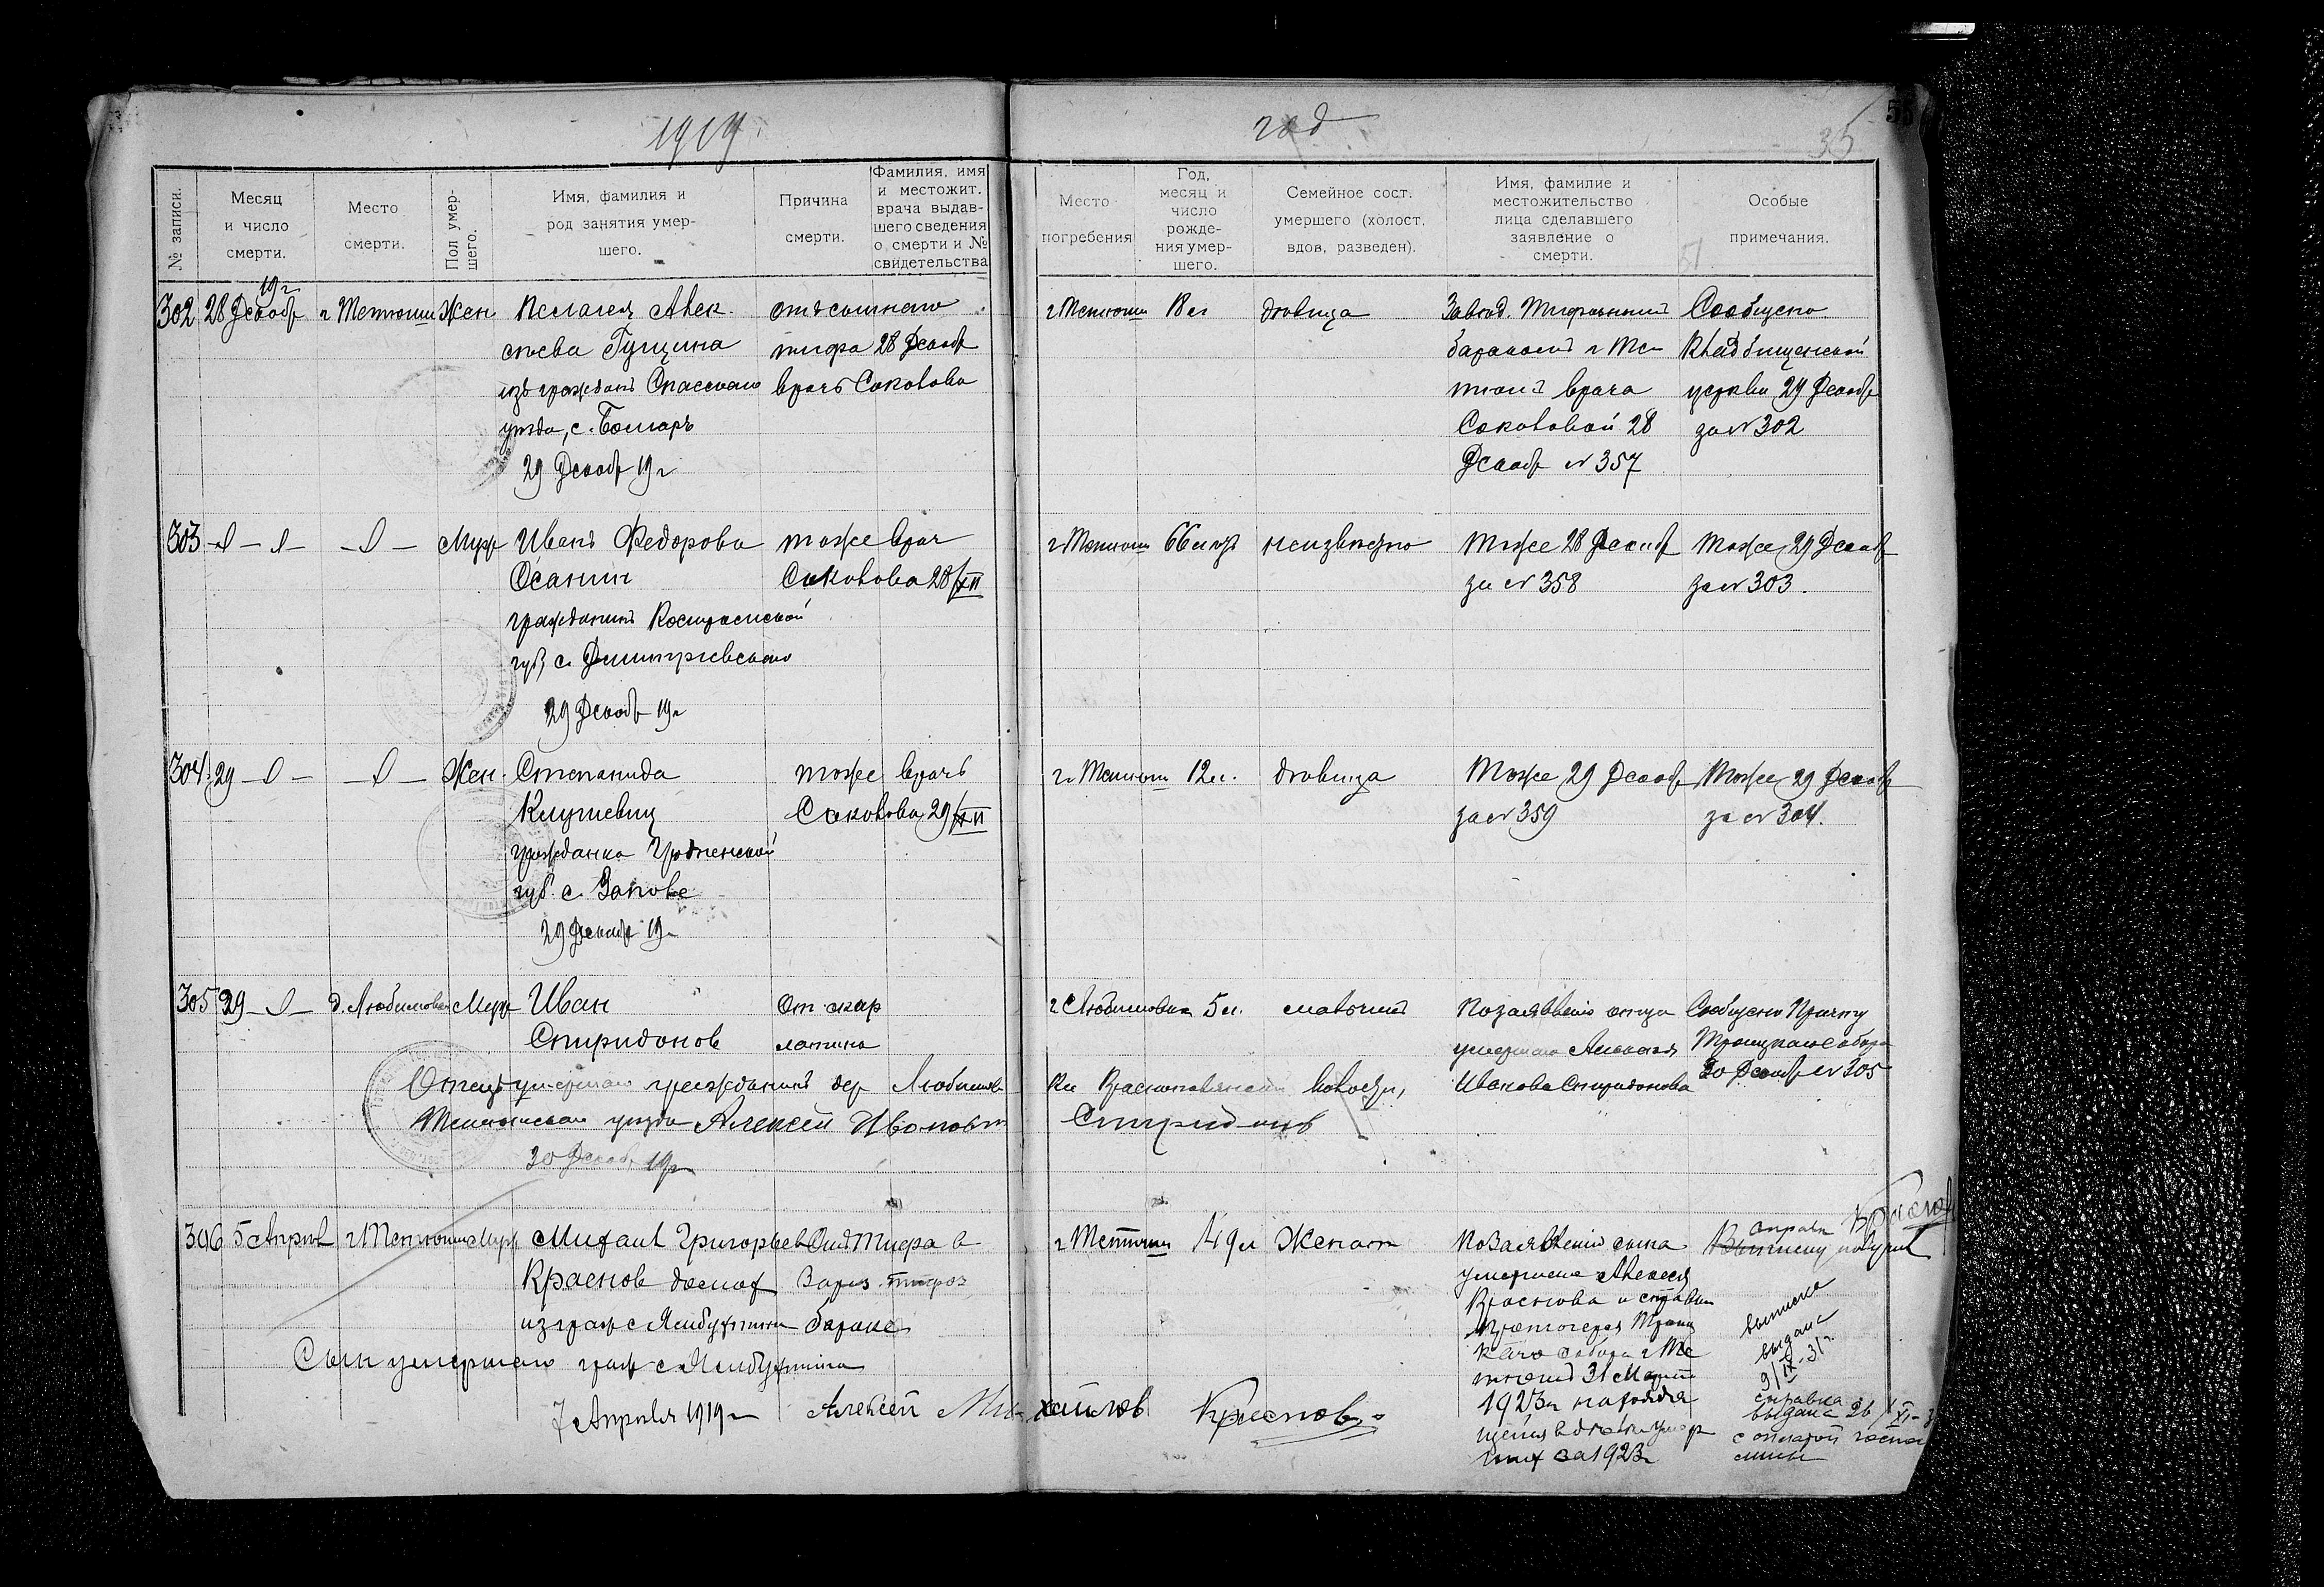 1919 год
35
№ записи.
Месяц и число смерти.
Место смерти.
Пол умершего.
Имя, фамилия и род занятия умершего.
Причина смерти.
Фамилия, имя и местожит. врача выдавшего сведения о смерти и № свидетельства
Место погребения
Год, месяц и число рождения умершего.
Семейное сост. умершего (холост, вдов, разведен).
Имя, фамилие и местожительство лица сделавшего заявление о смерти.
Особые примечания.
302
28 Декабр
19 г
г Тетюши
Жен
Пелагея Алек
сеева Гущина
изъ гражданъ Спасскаго
уезда, с. Болгаръ
29 Декабр 19 г
отъ сыпного
тифа 28 Декабр
врачъ Соколова
г Тетюши
18 л
девица
Завед. Тифозным
бараком г Те
тюш врача
Соколовой 28
Декабр № 357
Сообщено
Кладбищенской
церкви 29 Декабр
за № 302
303
Муж
Иванъ Федорова
Осанин
гражданинъ Костромской
губ, с. Дмитриевского
29 Декабр 19 г
тоже врач
Соколова 28/XII
г Тетюши
66 л
неизвестно
Тоже 28 Декабр
за № 358
Тоже 29 Декабр
за № 303.
304
29
Жен.
Степанида
гражданка Гродненской
губ. с.
29 Декабр 19 г
тоже врачъ
Соколова 29/XII
г. Тетюши
12 л.
девица
Тоже 29 Декабр
за № 359
Тоже 29 Декабр
за № 304.
305
29
д. Любимовка
Муж
Иван
Спиридонов
От скар
латина
Любимовка
5 л.
По заявлению отца
умершаго Алексея
Иванова Спиридонова
Сообщено Причту
Троицкаго собора
30 Декабр № 305
Отецъ умершаго гражданинъ дер Любимов
ки волости,
Тетюшскаго уезда Алексей Иванович
Спиридонов
30 Декабр 19 г
306
5 Апреля
г Тетюши
Муж
Михаил Григорьев
Краснов
из граж с
От Тифа в
Зараз.
бараке
г Тетюши
49 л
Женат
По заявлению сына
умершего Алексея
Краснова и справки
Протоиерея Троиц
каго собора г Те
тюш 31 Марта
1923 г находя
щейся в
ших за 1923 г
справку
Выписку получил
Краснов
выписка
выдана
9/IX-31 г.
справка
выдана 26/XI-3
с оплатой
Сын умершаго граж с
7 Апреля 1919 г
Алексей Михайлов Краснов